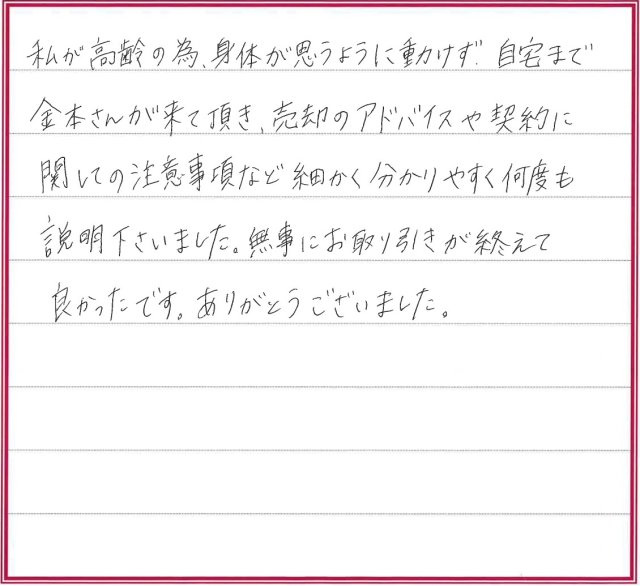 私が高齢の為、身体が思うように動けず、自宅まで
金本さんが来て頂き、売却のアドバイスや契約に
関しての注意事項など細かく分かりやすく何度も
説明下さいました。無事にお取り引きが終えて
良かったです。ありがとうございました。